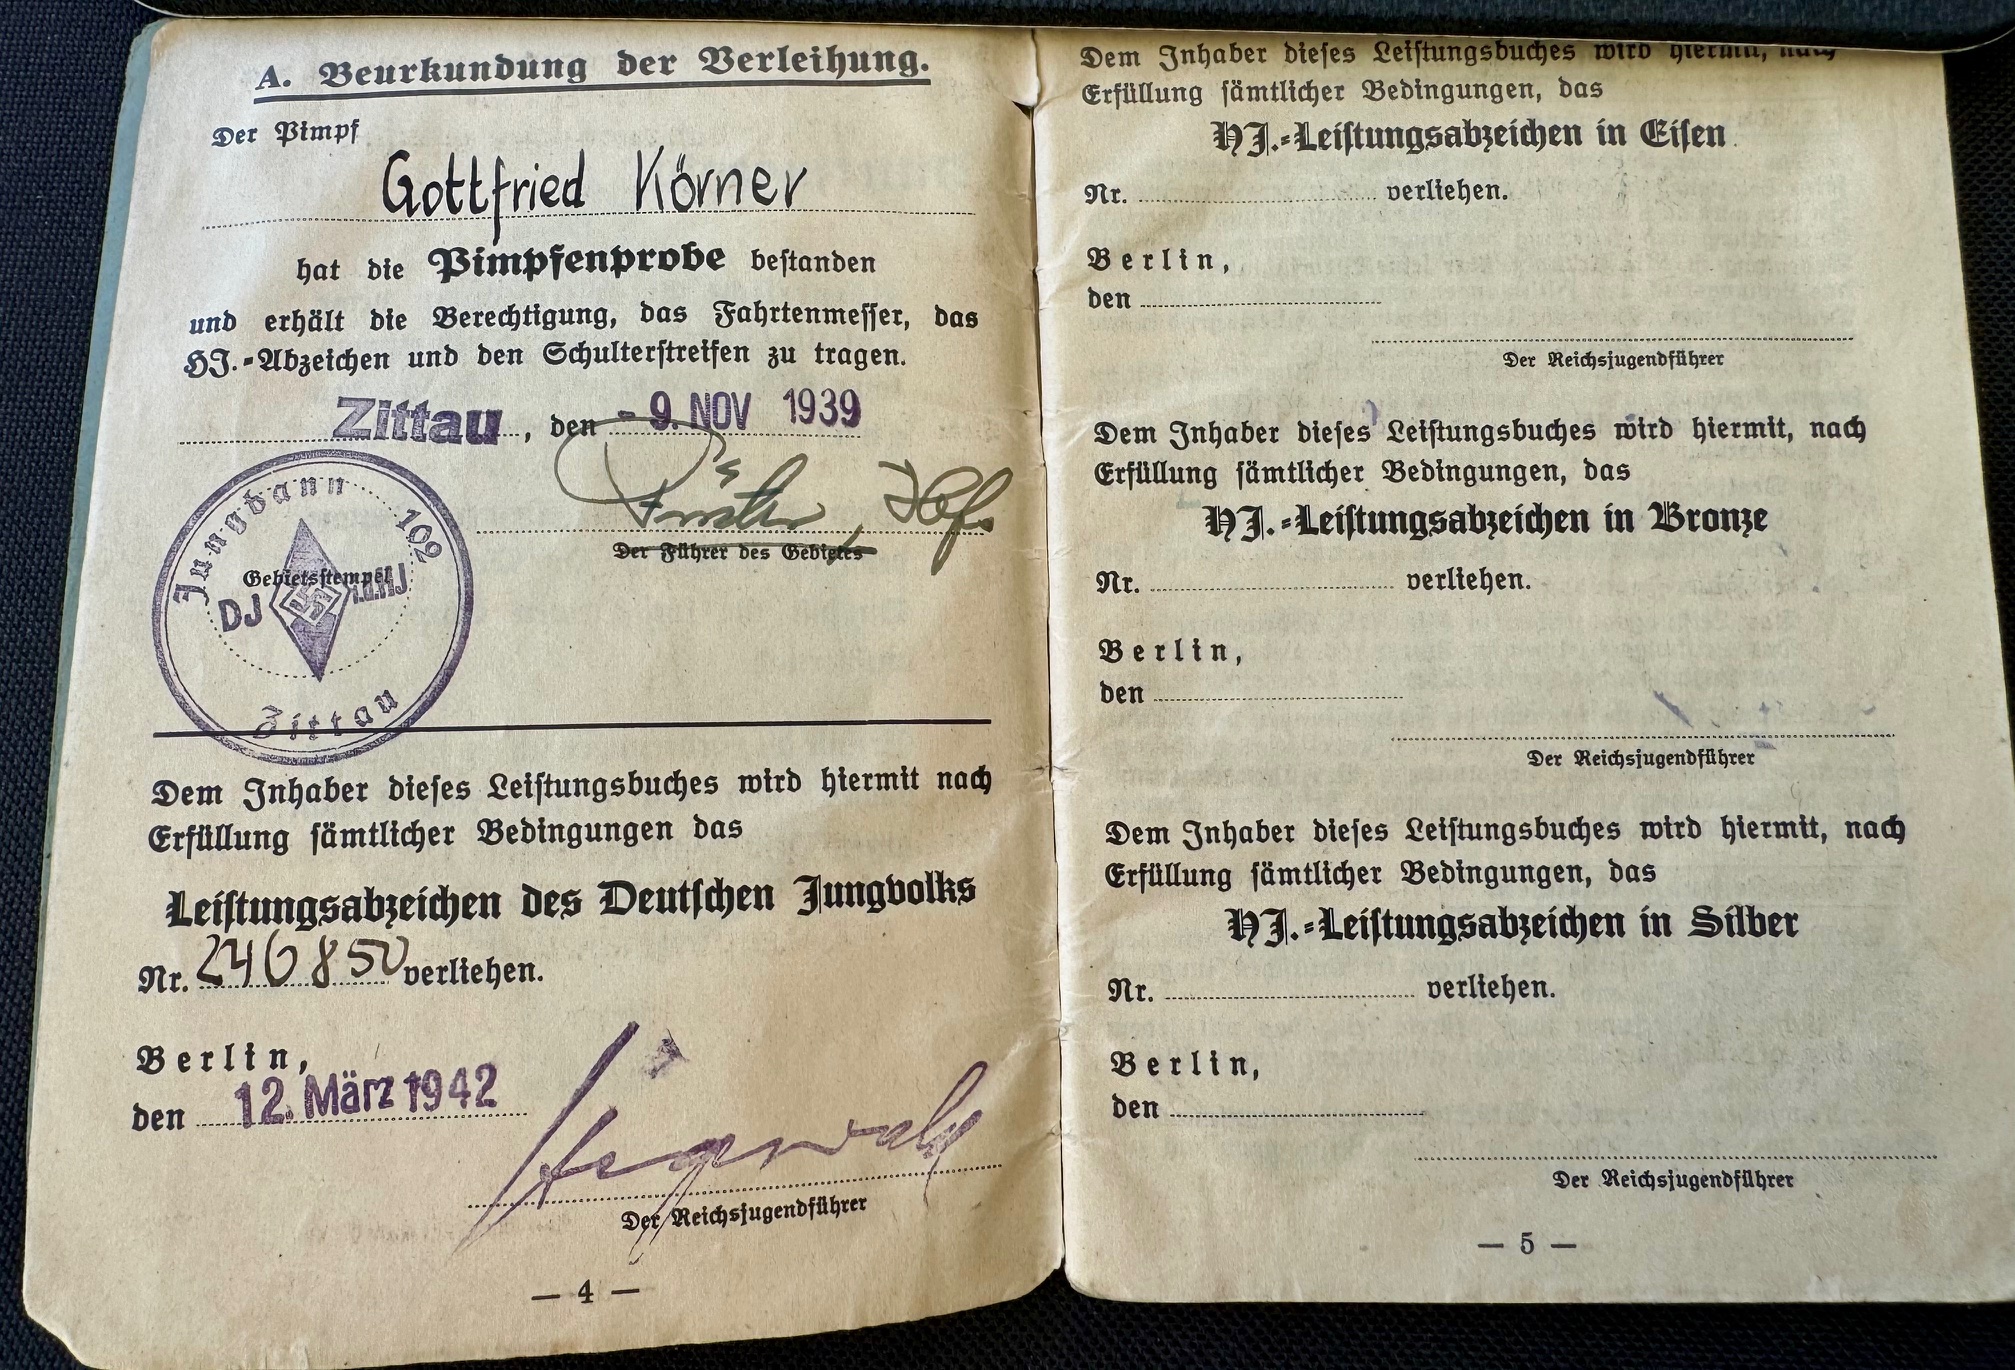 A. Beurkundung der Verleihung.
Der Pimpf
Gottfried Körner
hat die Pimpfenprobe bestanden
und erhält die Berechtigung, das Fahrtenmesser, das
HJ.-Abzeichen und den Schulterstreifen zu tragen.
Zittau, den - 9. NOV 1939
Der Führer des Gebietes
Jungbann 102
Gebietsstempel
DJ i.d.HJ
Zittau
Dem Inhaber dieses Leistungsbuches wird hiermit nach
Erfüllung sämtlicher Bedingungen das
Leistungsabzeichen des Deutschen Jungvolks
Nr. 246850 verliehen.
Berlin,
den 12. März 1942
Der Reichsjugendführer
— 4 —
Dem Inhaber dieses Leistungsbuches wird hiermit, nach
Erfüllung sämtlicher Bedingungen, das
HJ.-Leistungsabzeichen in Eisen
Nr. verliehen.
Berlin,
den
Der Reichsjugendführer
Dem Inhaber dieses Leistungsbuches wird hiermit, nach
Erfüllung sämtlicher Bedingungen, das
HJ.-Leistungsabzeichen in Bronze
Nr. verliehen.
Berlin,
den
Der Reichsjugendführer
Dem Inhaber dieses Leistungsbuches wird hiermit, nach
Erfüllung sämtlicher Bedingungen, das
HJ.-Leistungsabzeichen in Silber
Nr. verliehen.
Berlin,
den
Der Reichsjugendführer
— 5 —